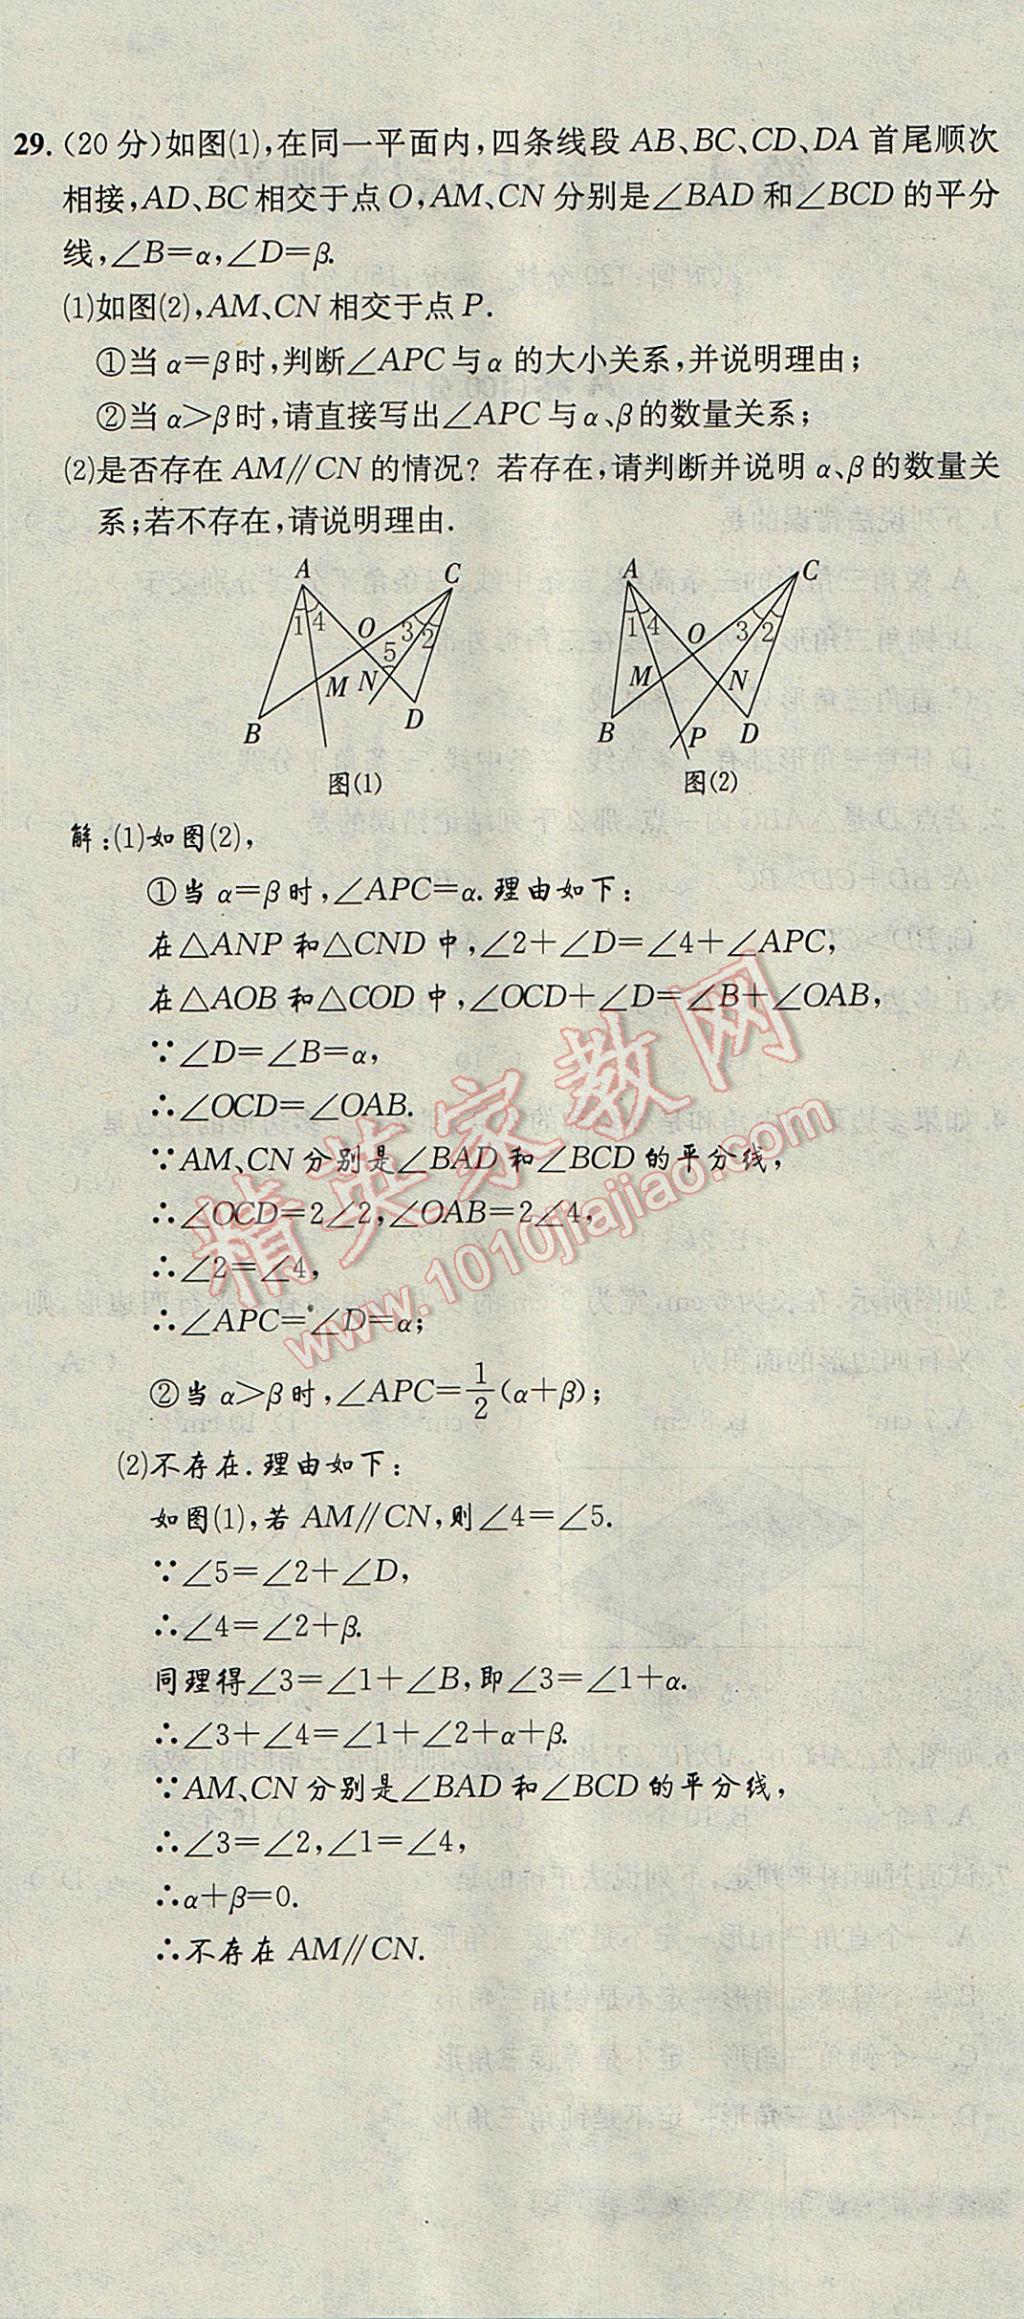 29.(20分)如图(1),在同一平面内,四条线段AB、BC、CD、DA首尾顺次
相接,AD、BC相交于点O,AM、CN分别是∠BAD和∠BCD的平分
线,∠B=α,∠D=β.
(1)如图(2),AM、CN相交于点P.
①当α=β时,判断∠APC与α的大小关系,并说明理由;
②当α>β时,请直接写出∠APC与α、β的数量关系;
(2)是否存在AM∥CN的情况?若存在,请判断并说明α、β的数量关
系;若不存在,请说明理由.
A
C
1
4
O
3
2
5
M
N
B
D
图(1)
A
C
1
4
O
3
2
M
N
B
P
D
图(2)
解:(1)如图(2),
①当α=β时,∠APC=α.理由如下:
在△ANP和△CND中,∠2+∠D=∠4+∠APC,
在△AOB和△COD中,∠OCD+∠D=∠B+∠OAB,
∵∠D=∠B=α,
∴∠OCD=∠OAB.
∵AM、CN分别是∠BAD和∠BCD的平分线,
∴∠OCD=2∠2,∠OAB=2∠4,
∴∠2=∠4,
∴∠APC=∠D=α;
②当α>β时,∠APC=1/2(α+β);
(2)不存在.理由如下:
如图(1),若AM∥CN,则∠4=∠5.
∵∠5=∠2+∠D,
∴∠4=∠2+β.
同理得∠3=∠1+∠B,即∠3=∠1+α.
∴∠3+∠4=∠1+∠2+α+β.
∵AM、CN分别是∠BAD和∠BCD的平分线,
∴∠3=∠2,∠1=∠4,
∴α+β=0.
∴不存在AM∥CN.
精英家教网
www.1010jiajiao.com